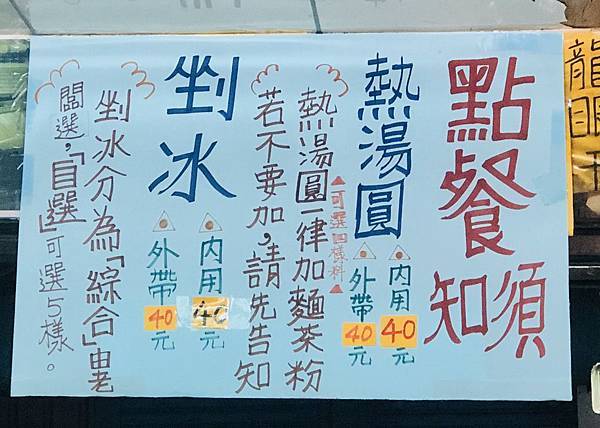 點餐
須知
熱湯圓
內用40元
外帶40元
▲可選四樣料▲
熱湯圓一律加麵茶粉
若不要加,請先告知
剉冰
內用40元
外帶40元
剉冰分為「綜合」老
闆選,「自選」可選5樣。
龍眼